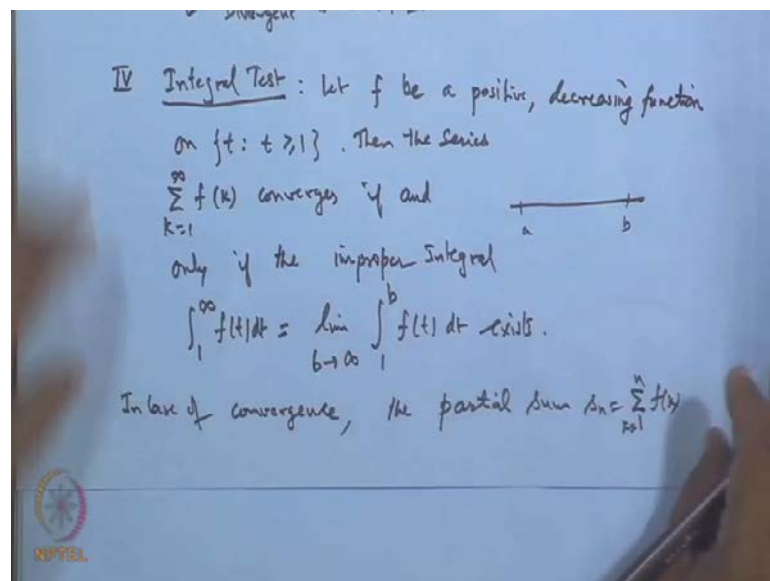 Divergent
IV Integral Test : Let f be a positive, decreasing function
on {t : t ≥ 1} . Then the series
∑_{k=1}^{∞} f(k) converges if and
a b
only if the improper Integral
∫_1^∞ f(t) dt = lim_{b→∞} ∫_1^b f(t) dt exists.
In case of convergence, the partial sum s_n = ∑_{k=1}^{n} f(k)
NPTEL